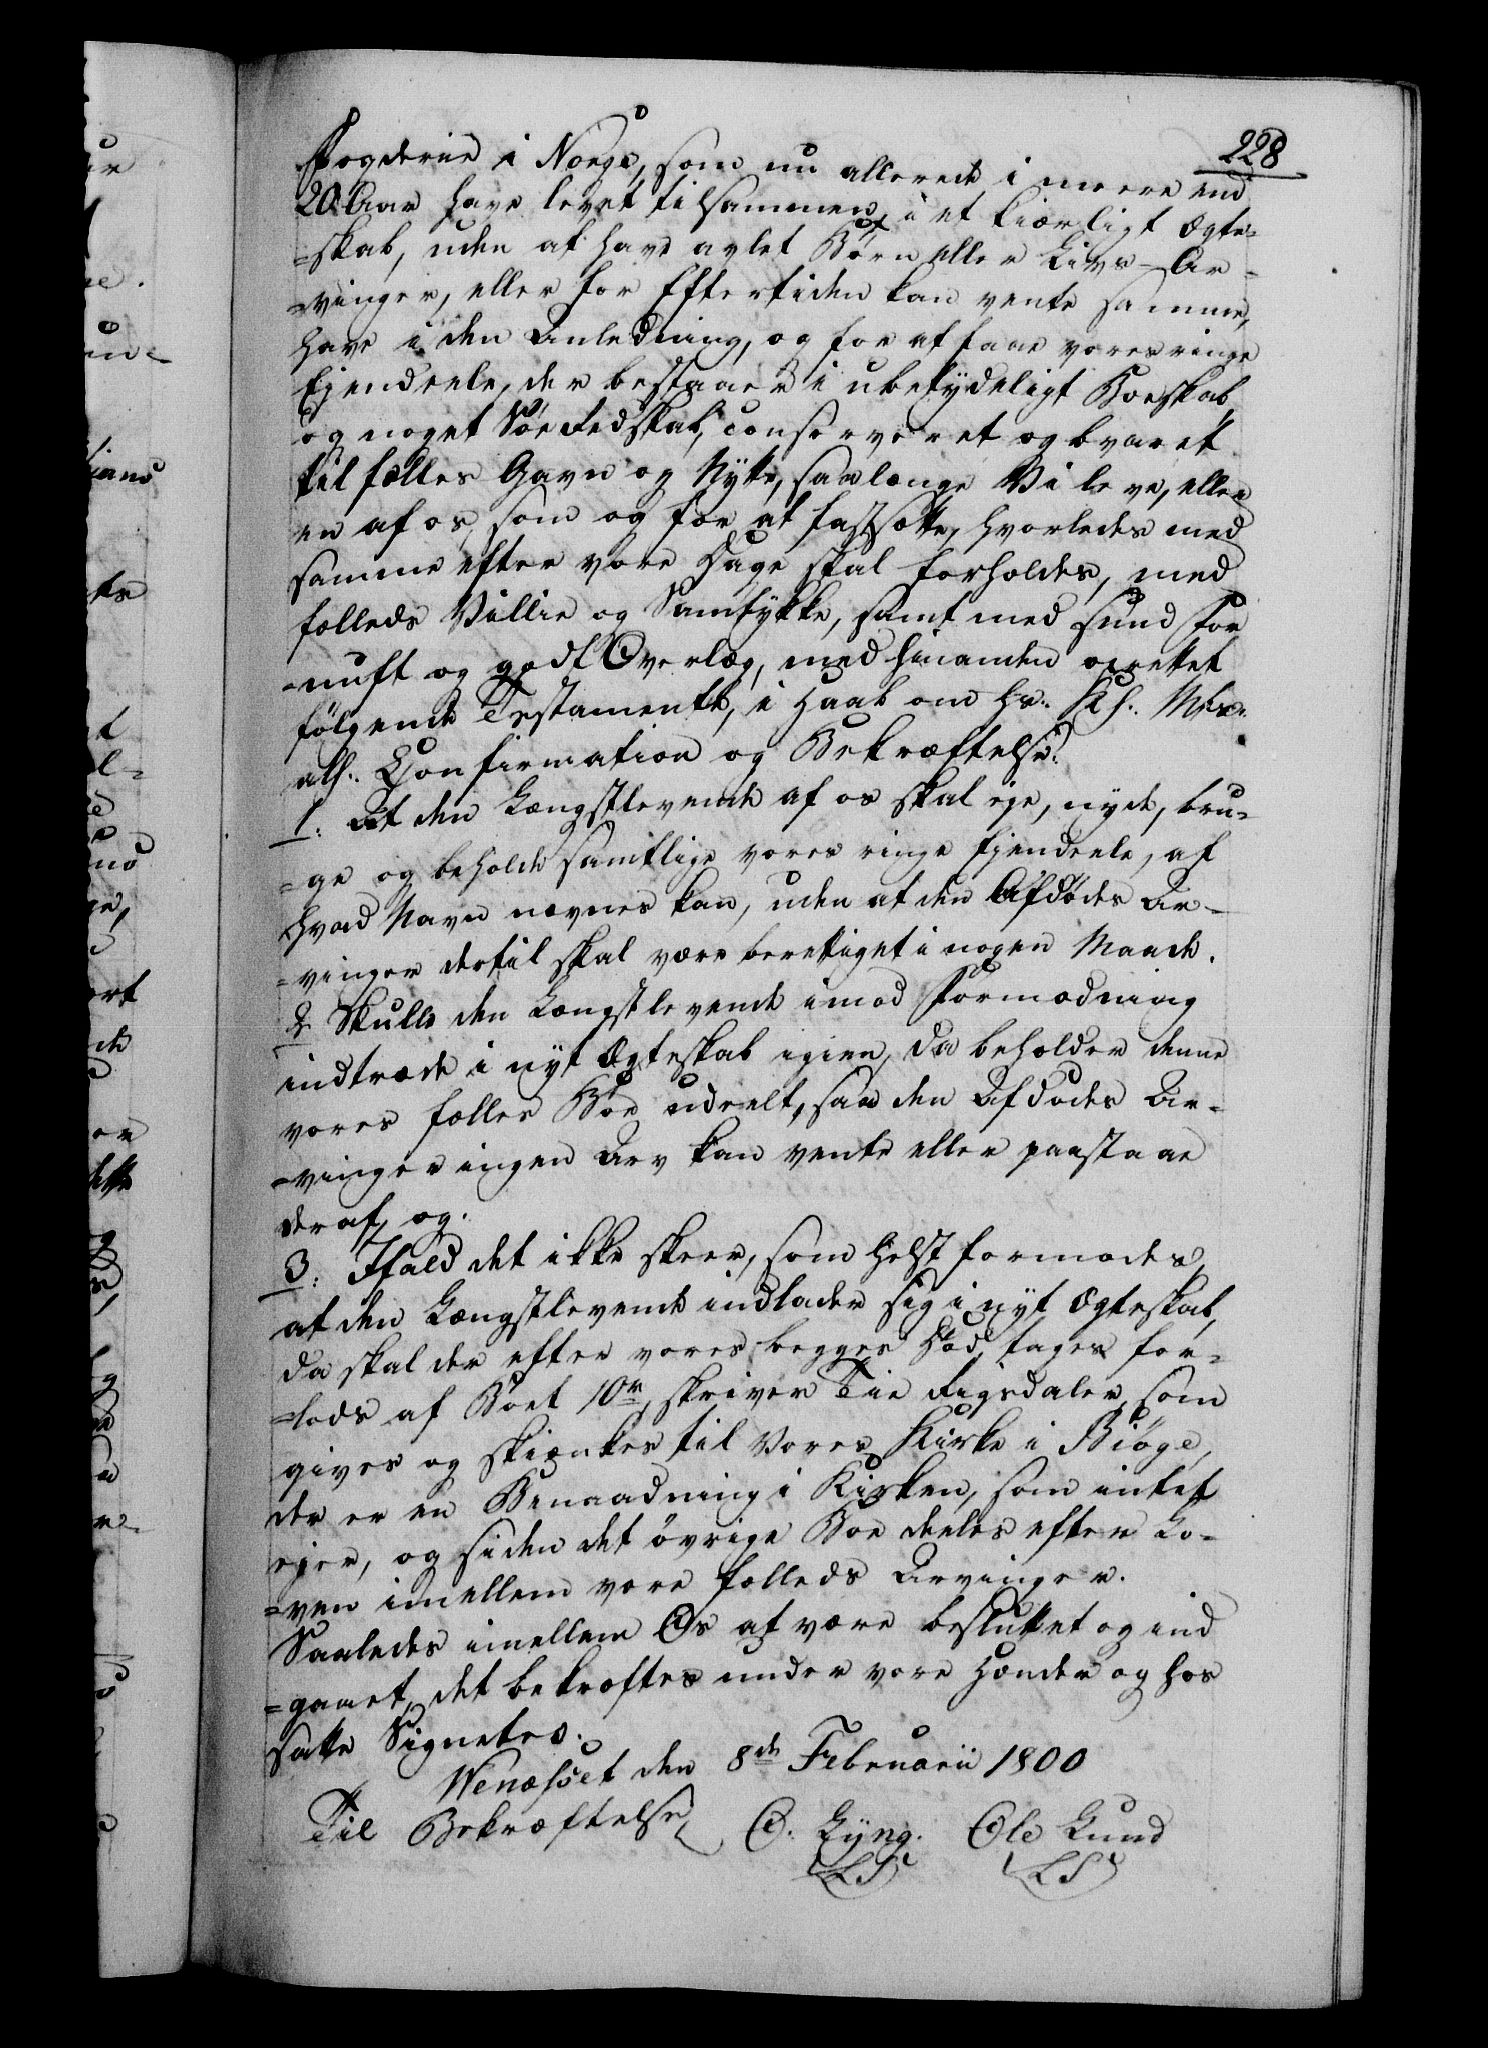 228
Fogderie i Norge, som nu allerede i meere end
20 Aar have levet tilsammen i et kiærligt Ægte-
=skab, uden at have avlet Børn eller Livs-Ar-
=vinger, eller for Eftertiden kan vente samme,
have i den Anledning, og for at faae vores ringe
Ejendeele, der bestaaer i ubetydeligt Boeskab
og noget Søe Redskab, conserveret og bvaret
til fælles Gavn og Nytte, saalænge Vi leve, eller
en af os, som og for at fastsætte, hvorledes med
samme efter vore Dage skal forholdes, med
fælleds Villie og Samtykke, samt med sund For
=nuft og godt Overlæg, med hinanden oprettet
følgende Testamente, i Haab om Hs: Kl: Mts:
all: Confirmation og Bekræftelse:
1: At den Længstlevende af os skal eje, nyde, bru-
=ge og beholde samtlige vores ringe Ejendeele, af
hvad Navn nævnes kan, uden at den Afdødes Ar-
=vinger dertil skal være berettiget i nogen Maade.
2 Skulle den Længstlevende imod Formodning
indtræde i nyt Ægteskab igien, da beholder denne
vores fælles Boe udeelt, saa den Afdødes Ar-
=vinger ingen Arv kan vente eller paastaae
deraf, og.
3: Ifald det ikke skeer, som helst formodes,
at den Længstlevende indlader sig i nyt Ægteskab,
da skal der efter vores begges Død, tages for-
=lods af Boet 10 r, skriver Tie Rigsdaler, som
gives og skiænkes til Vores Kirke i
der er en Benaadning i Kirken, som intet
ejer, og siden det øvrige Boe deeles efter Lo-
=ven imellem vore fælleds Arvinger.
Saaledes imellem Os at være besluttet og ind
=gaaet, det bekræftes under vore Hænder og hos
satte Signeter.
Wenæsset den 8de Februarii 1800
Til Bekræftelse O. Lyng. Ole Lund
LS LS